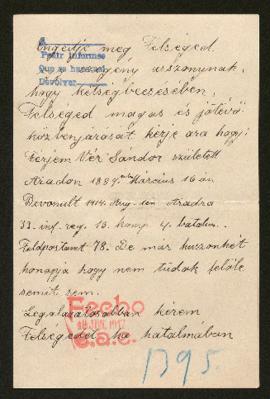 Engedje meg Felséged
Pedir informes
Que se
Devolver
szegény asszonynak,
hogy kétségbeesésében,
Felséged magas és jótévő
közbenjárását kérje ara hogy:
Férjem Vér Sándor született
Aradon 1889 Március 16 án
Bevonult 1914. Aug. 1én Aradra
33. inf. reg. 15. komp. 4. batalion.
Feldpostamt 78. De már huszonhét
honapja hogy nem tudok felőle
semit sem.
Legalázatosabban kérem
Fecho
JUN. 1917
C.a.c.
Felségedet ha hatalmában
1395.